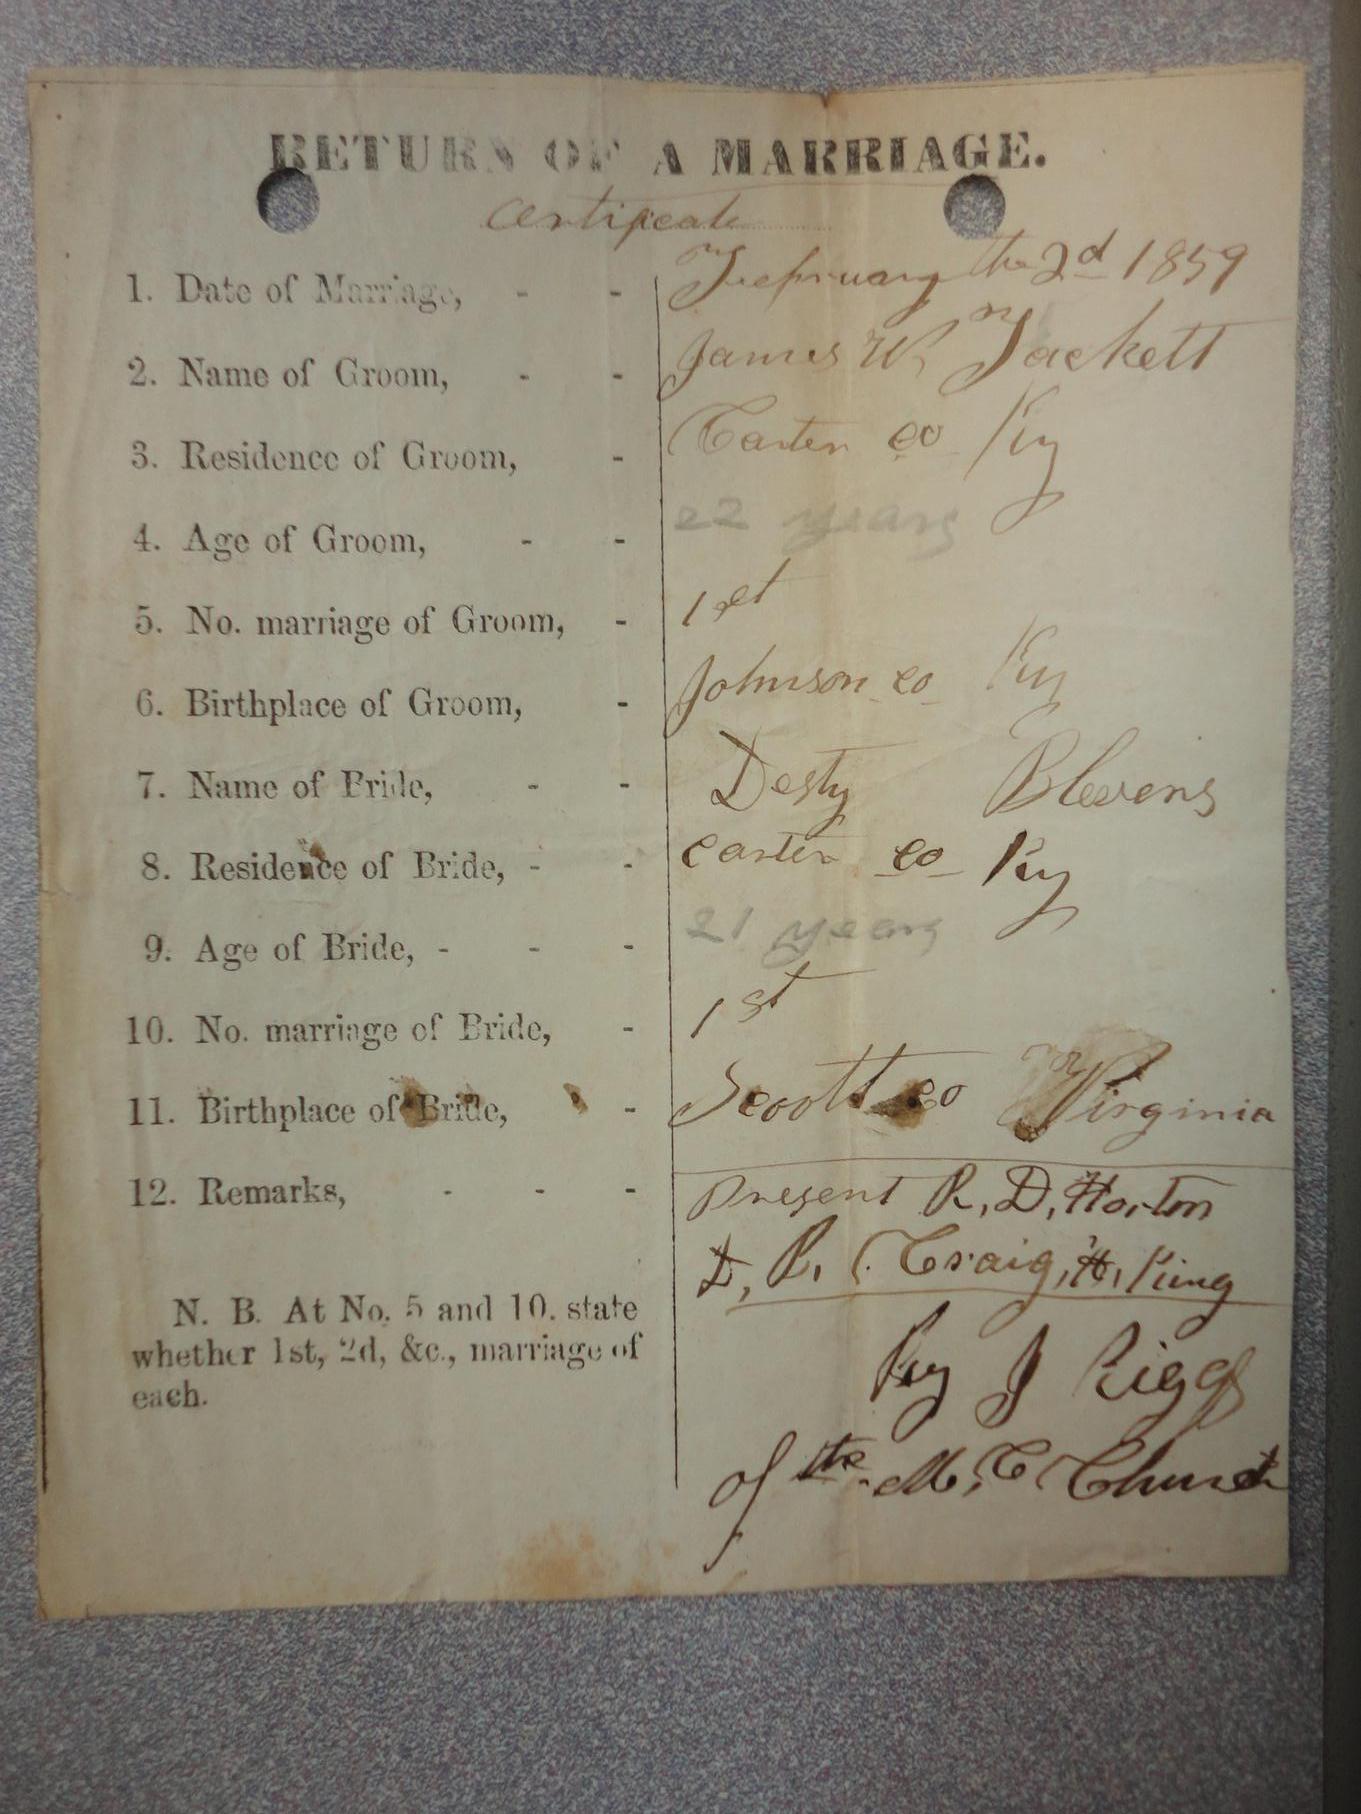 RETURN OF A MARRIAGE.
Certificate
1. Date of Marriage, - - February the 2d 1859
2. Name of Groom, - - James W, Tackett
3. Residence of Groom, - Carter co Ky
4. Age of Groom, - - 22 years
5. No. marriage of Groom, - 1st
6. Birthplace of Groom, - Johnson co Ky
7. Name of Bride, - - Desty Blevens
8. Residence of Bride, - - Carter co Ky
9. Age of Bride, - - - 21 years
10. No. marriage of Bride, - 1st
11. Birthplace of Bride, - Scott co Virginia
12. Remarks, - - - Present R, D, Horton
D, R. Craig, H, King
N. B. At No. 5 and 10. state
whether 1st, 2d, &c., marriage of
each.
By J Riggs
of the M, C Church